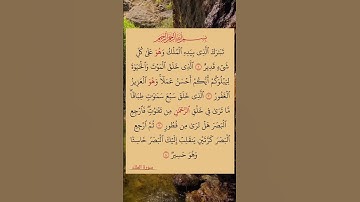 بسم الله الرحمن الرحيم
تَبَٰرَكَ ٱلَّذِى بِيَدِهِ ٱلْمُلْكُ وَهُوَ عَلَىٰ كُلِّ
شَىْءٍ قَدِيرٌ ١ ٱلَّذِى خَلَقَ ٱلْمَوْتَ وَٱلْحَيَوٰةَ
لِيَبْلُوَكُمْ أَيُّكُمْ أَحْسَنُ عَمَلًا وَهُوَ ٱلْعَزِيزُ
ٱلْغَفُورُ ٢ ٱلَّذِى خَلَقَ سَبْعَ سَمَٰوَٰتٍ طِبَاقًا
مَّا تَرَىٰ فِى خَلْقِ ٱلرَّحْمَٰنِ مِن تَفَٰوُتٍ فَٱرْجِعِ
ٱلْبَصَرَ هَلْ تَرَىٰ مِن فُطُورٍ ٣ ثُمَّ ٱرْجِعِ
ٱلْبَصَرَ كَرَّتَيْنِ يَنقَلِبْ إِلَيْكَ ٱلْبَصَرُ خَاسِئًا
وَهُوَ حَسِيرٌ ٤
سورة الملك